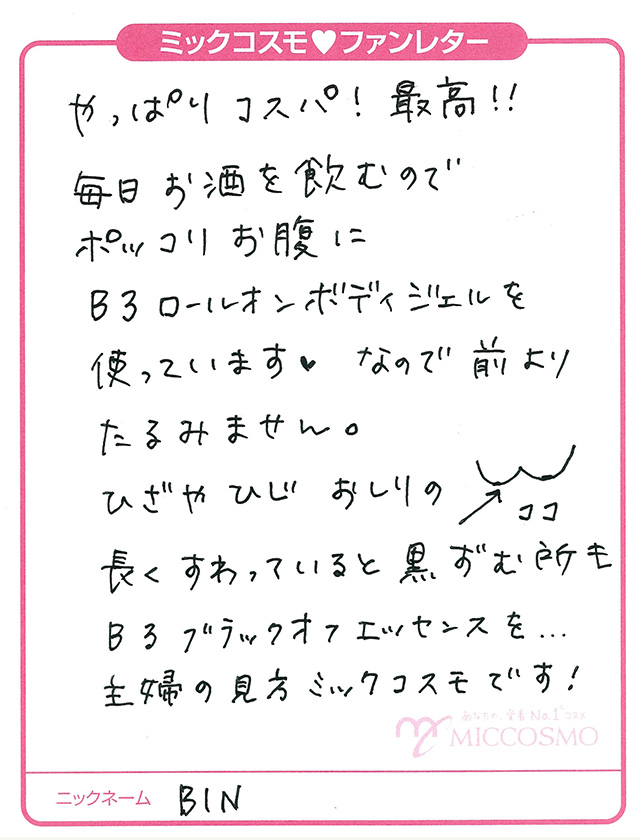 ミックコスモ♥ファンレター
やっぱりコスパ！最高!!
毎日お酒を飲むので
ポッコリお腹に
B3ロールオンボディジェルを
使っています♥なので前より
たるみません。
ひざやひじ おしりの
ココ
長くすわっていると黒ずむ所も
B3ブラックオフエッセンスを…
主婦の見方ミックコスモです！
あなたの、愛着No.1コスメ
MICCOSMO
ニックネーム BIN